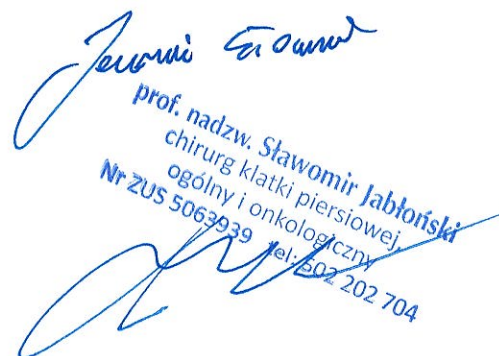 prof. nadzw. Sławomir Jabłoński
chirurg klatki piersiowej,
ogólny i onkologiczny
Nr ZUS 5063939 tel: 502 202 704